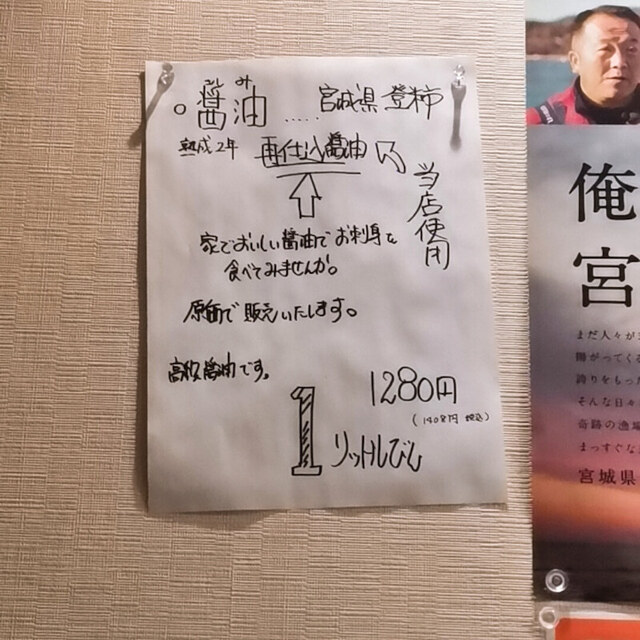 ○醤油.....宮城県 登柿
熟成2年 再仕込醤油
当店使用
家でおいしい醤油でお刺身を
食べてみませんか。
原価で販売いたします。
高級醤油です。
1280円
(1408円 税込)
1リットルびん
俺
宮
まだ人々が
誇りをもっ
そんな日々
奇跡の漁場
まっすぐな
宮城県